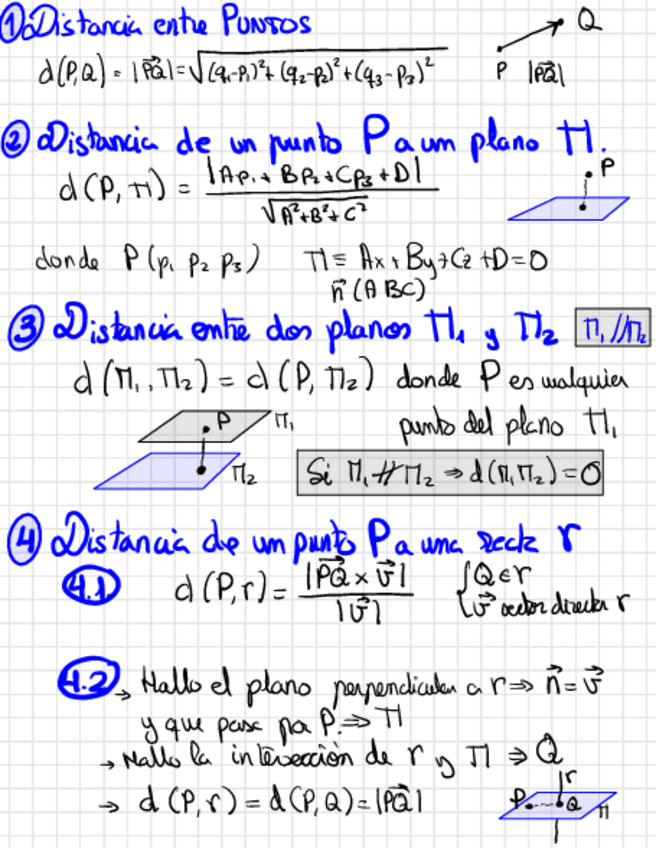 ① Distancia entre PUNTOS
d(P,Q) = |PQ⃗| = √((q₁-p₁)²+(q₂-p₂)²+(q₃-p₃)²)
P |PQ⃗| Q
② Distancia de un punto P a un plano Π.
d(P,π) = |Ap₁+Bp₂+Cp₃+D| / √(A²+B²+C²)
P
donde P(p₁ p₂ p₃) Π ≡ Ax+By+Cz+D=0
n⃗(A B C)
③ Distancia entre dos planos Π₁ y Π₂ Π₁//Π₂
d(Π₁,Π₂) = d(P,Π₂) donde P es cualquier
punto del plano Π₁
P Π₁
Π₂
Si Π₁∦Π₂ ⇒ d(Π₁,Π₂)=0
④ Distancia de un punto P a una recta r
4.1 d(P,r) = |PQ⃗ × v⃗| / |v⃗| { Q∈r
v⃗ vector director r
4.2 → Hallo el plano perpendicular a r ⇒ n⃗=v⃗
y que pase por P. ⇒ Π
→ Hallo la intersección de r y Π ⇒ Q
→ d(P,r) = d(P,Q) = |PQ⃗|
r
P Q Π